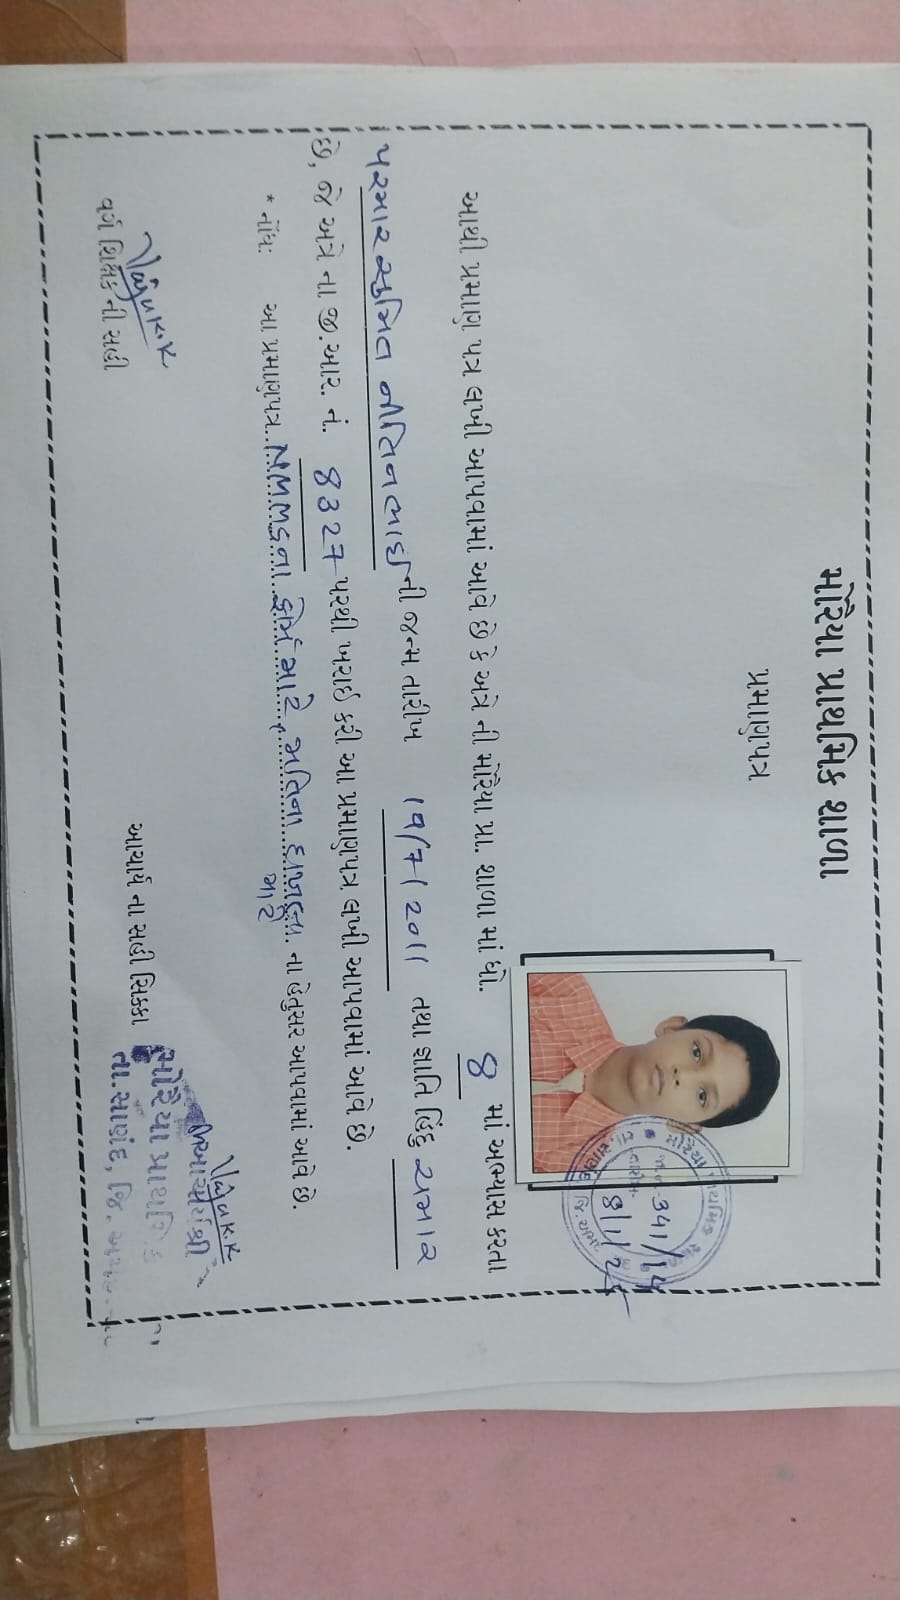 મોરૈયા પ્રાથમિક શાળા
પ્રમાણપત્ર
આથી પ્રમાણ પત્ર લખી આપવામાં આવે છે કે અત્રે ની મોરૈયા પ્રા. શાળા માં ધો. 8 માં અભ્યાસ કરતા
પરમાર સુમિત નીતિનભાઇ ની જન્મ તારીખ 19/7/2011 તથા જ્ઞાતિ હિંદુ ચમાર
છે, જે અત્રે ના જી.આર. નં. 8327 પરથી ખરાઈ કરી આ પ્રમાણપત્ર લખી આપવામાં આવે છે.
* નોંધ: આ પ્રમાણપત્ર NMMSના ફોર્મ માટે, જાતિના દાખલા માટે ના હેતુસર આપવામાં આવે છે.
વર્ગ શિક્ષક ની સહી
આચાર્ય ના સહી સિક્કા
આચાર્યશ્રી
મોરૈયા પ્રાથમિક
તા.સાણંદ, જિ.
341/14